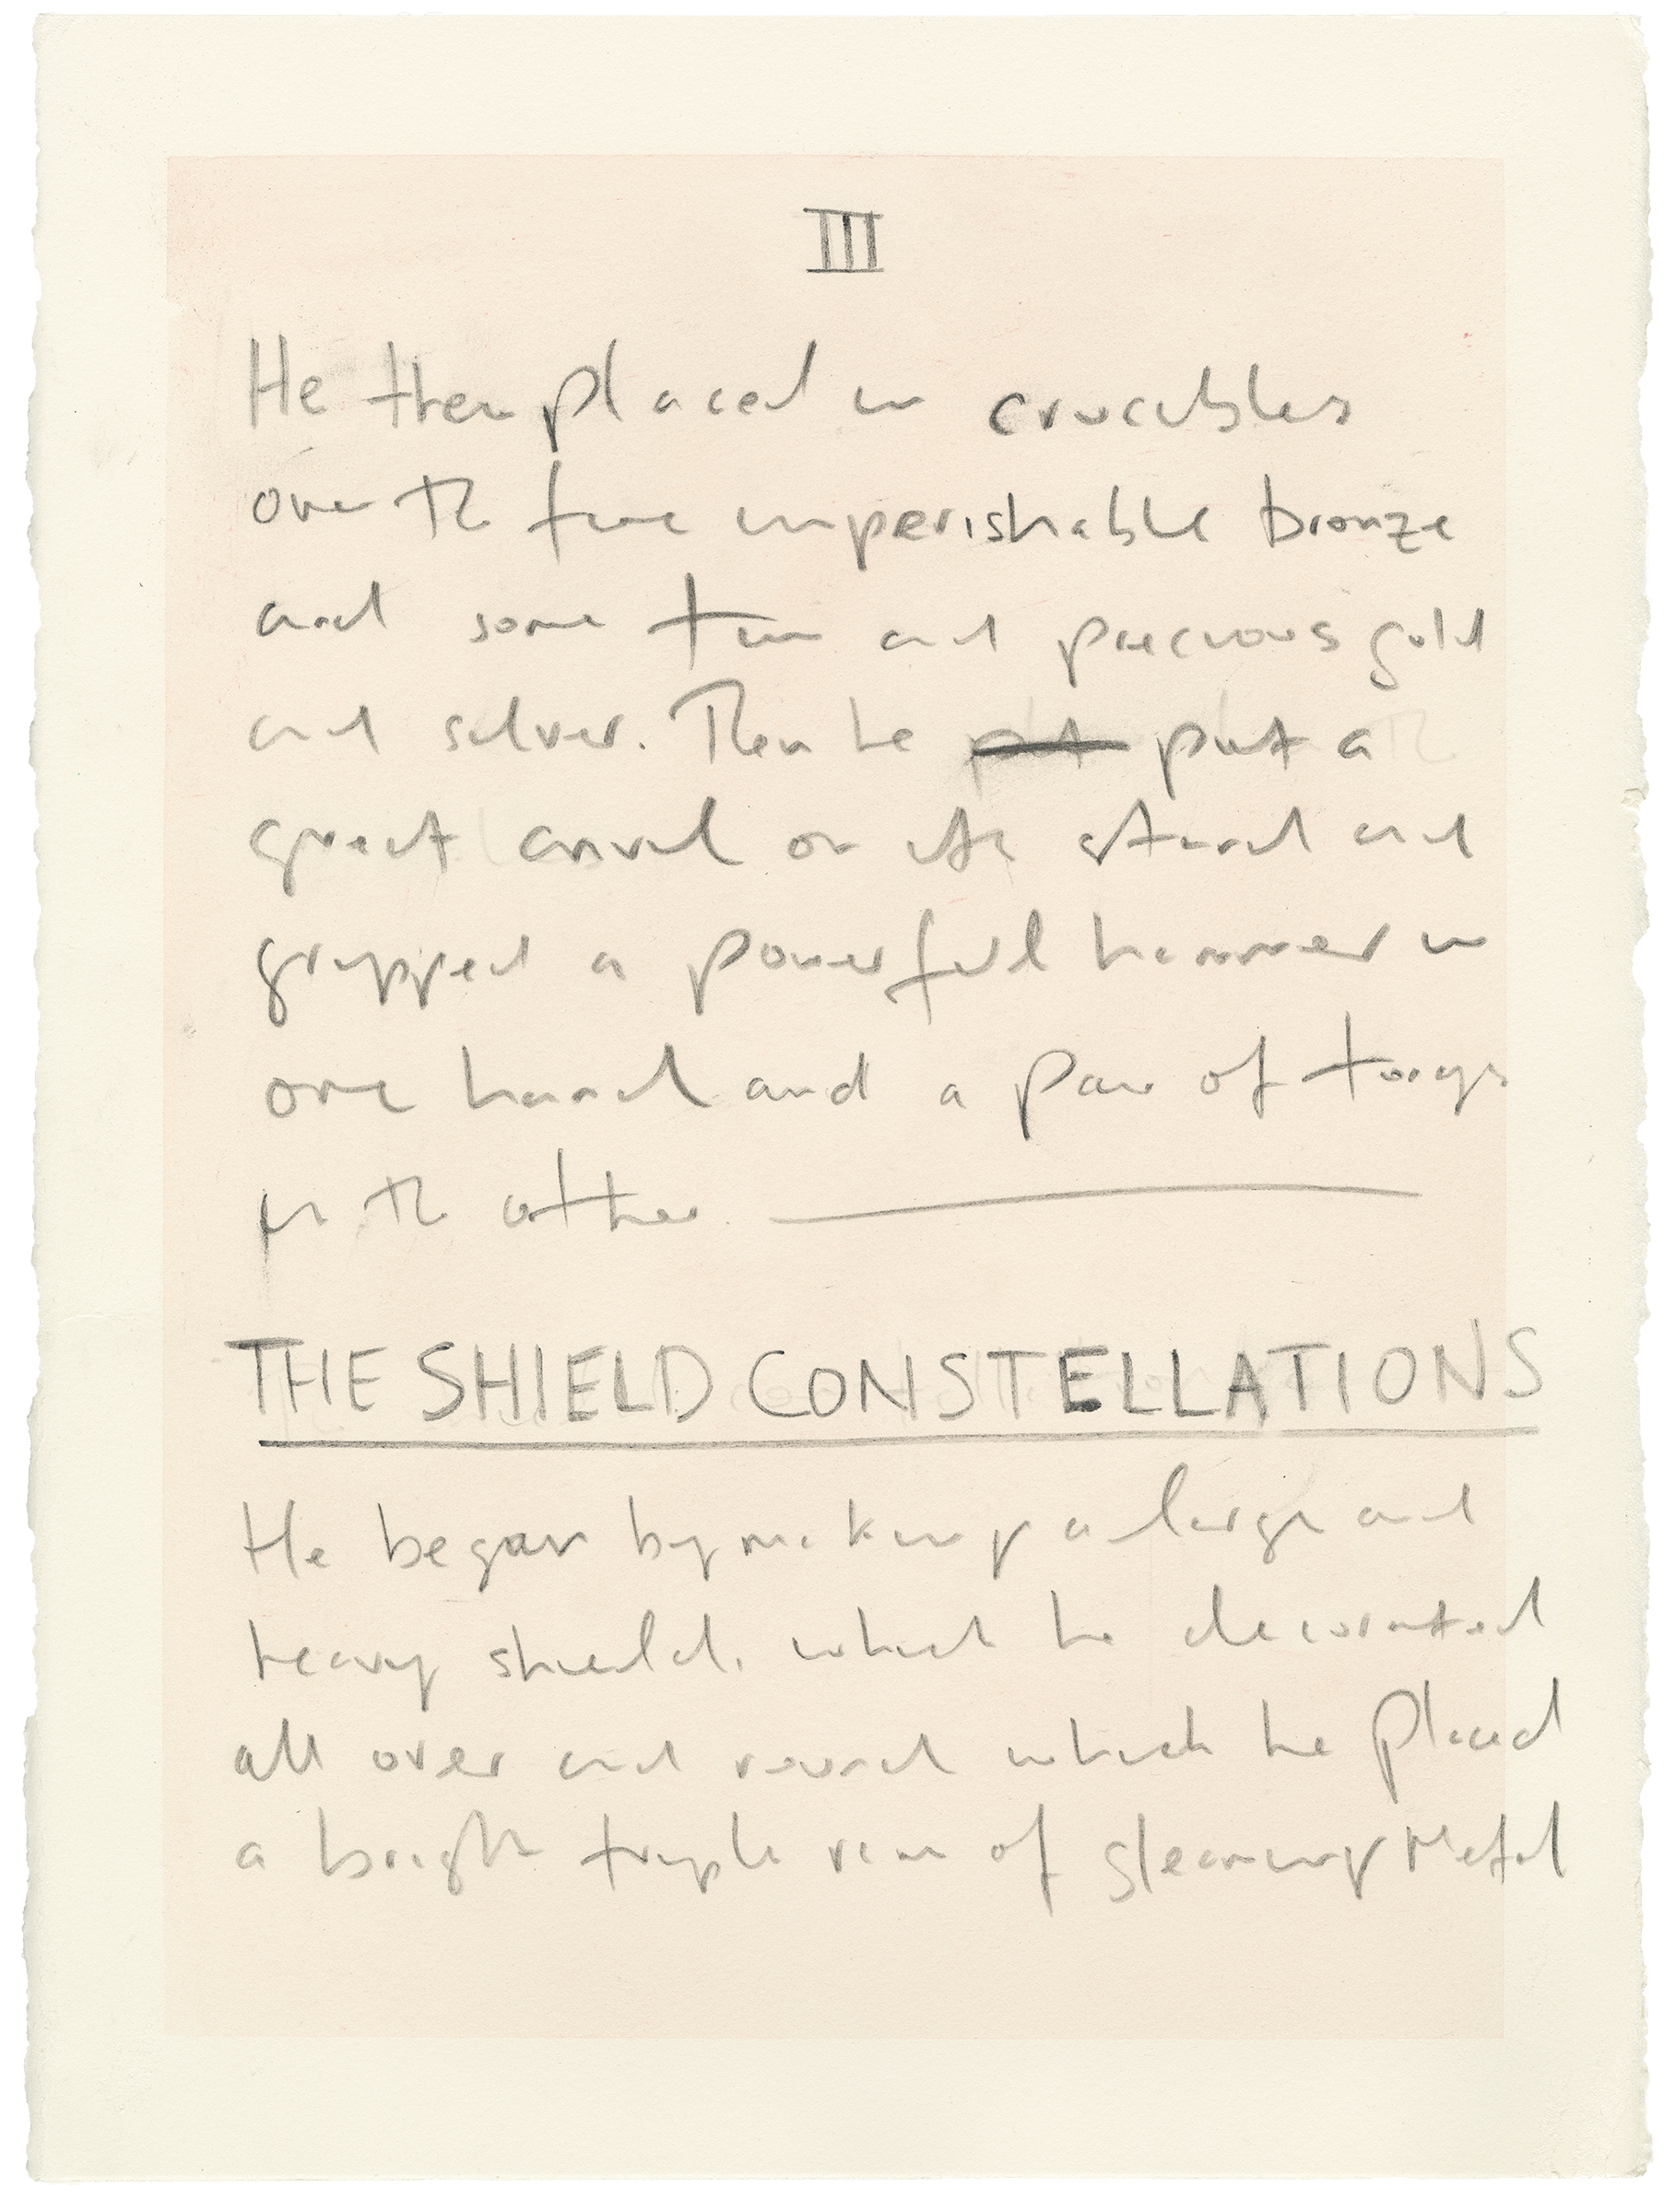 III
He then placed in crucibles
over the fire imperishable bronze
and some tin and precious gold
and silver. Then he put put a
great anvil on its stand and
gripped a powerful hammer in
one hand and a pair of tongs
in the other
THE SHIELD CONSTELLATIONS
He began by making a large and
heavy shield, which he decorated
all over and round which he placed
a bright triple rim of gleaming Metal